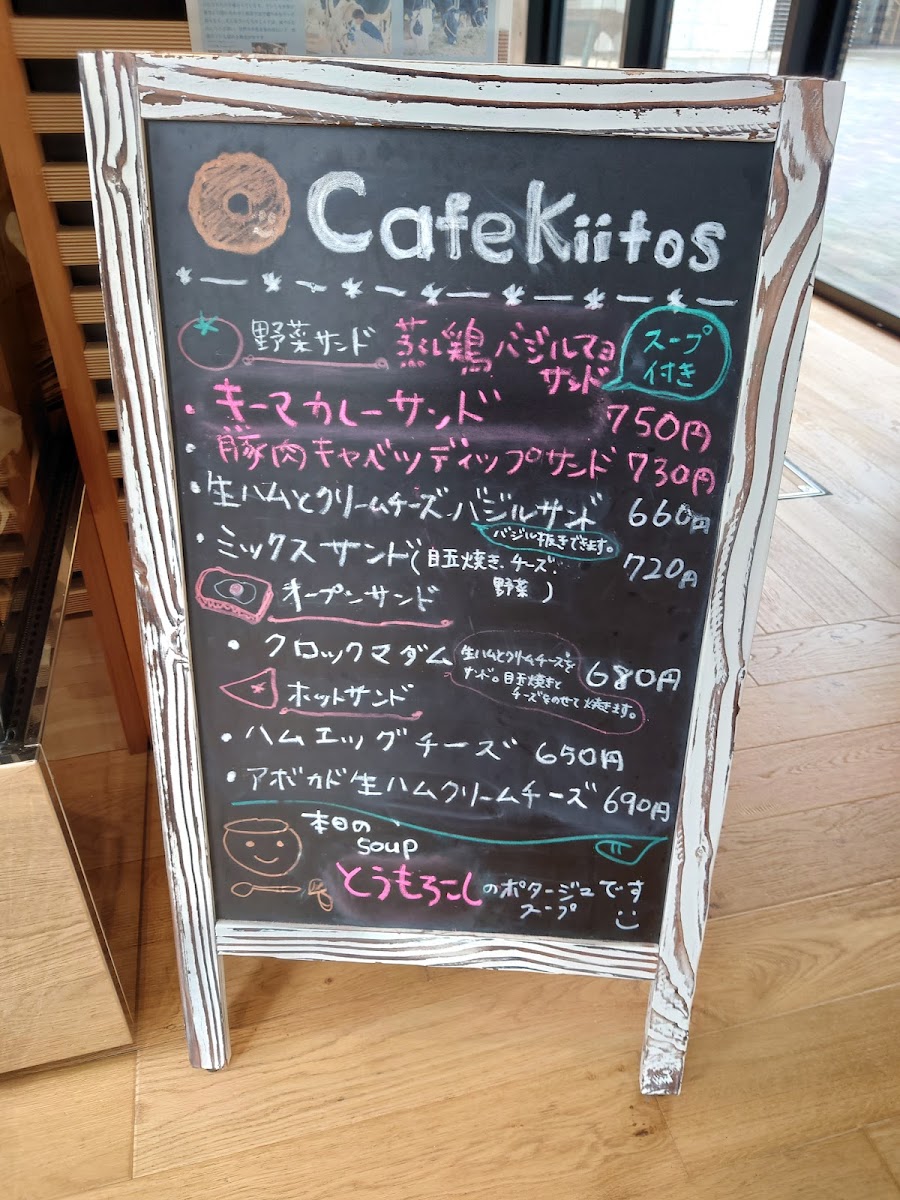 CafeKiitos
野菜サンド 蒸し鶏バジルマヨ
サンド
スープ
付き
・キーマカレーサンド 750円
・豚肉キャベツディップサンド 730円
・生ハムとクリームチーズ・バジルサンド 660円
バジル抜きできます。
・ミックスサンド(目玉焼き、チーズ、 720円
野菜)
オープンサンド
・クロックマダム 680円
生ハムとクリームチーズを
サンド。目玉焼きと
チーズをのせて焼きます。
ホットサンド
・ハムエッグチーズ 650円
・アボカド生ハムクリームチーズ 690円
本日の、
soup
とうもろこしのポタージュです
スープ